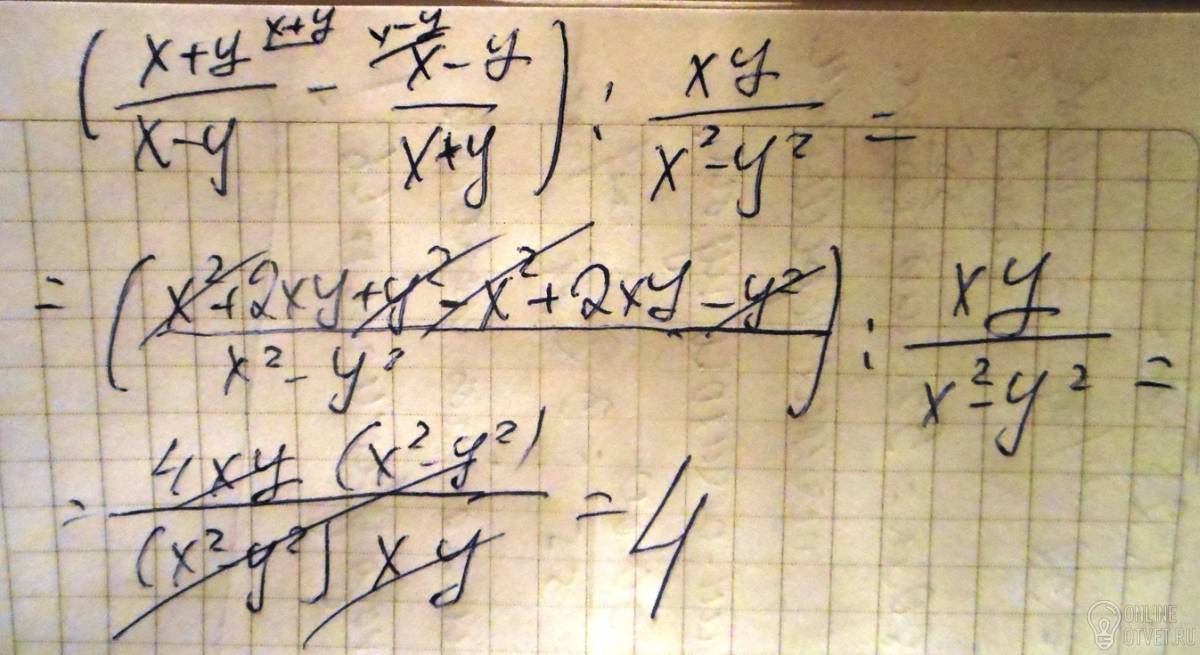 ( (x+y)/(x-y) ^{x+y} - ^{x-y} (x-y)/(x+y) ) : xy/(x²-y²) =
= ( (x²+2xy+y²-x²+2xy-y²)/(x²-y²) ) : xy/(x²-y²) =
= 4xy(x²-y²)/((x²-y²)xy) = 4
ONLINE
OTVET.RU